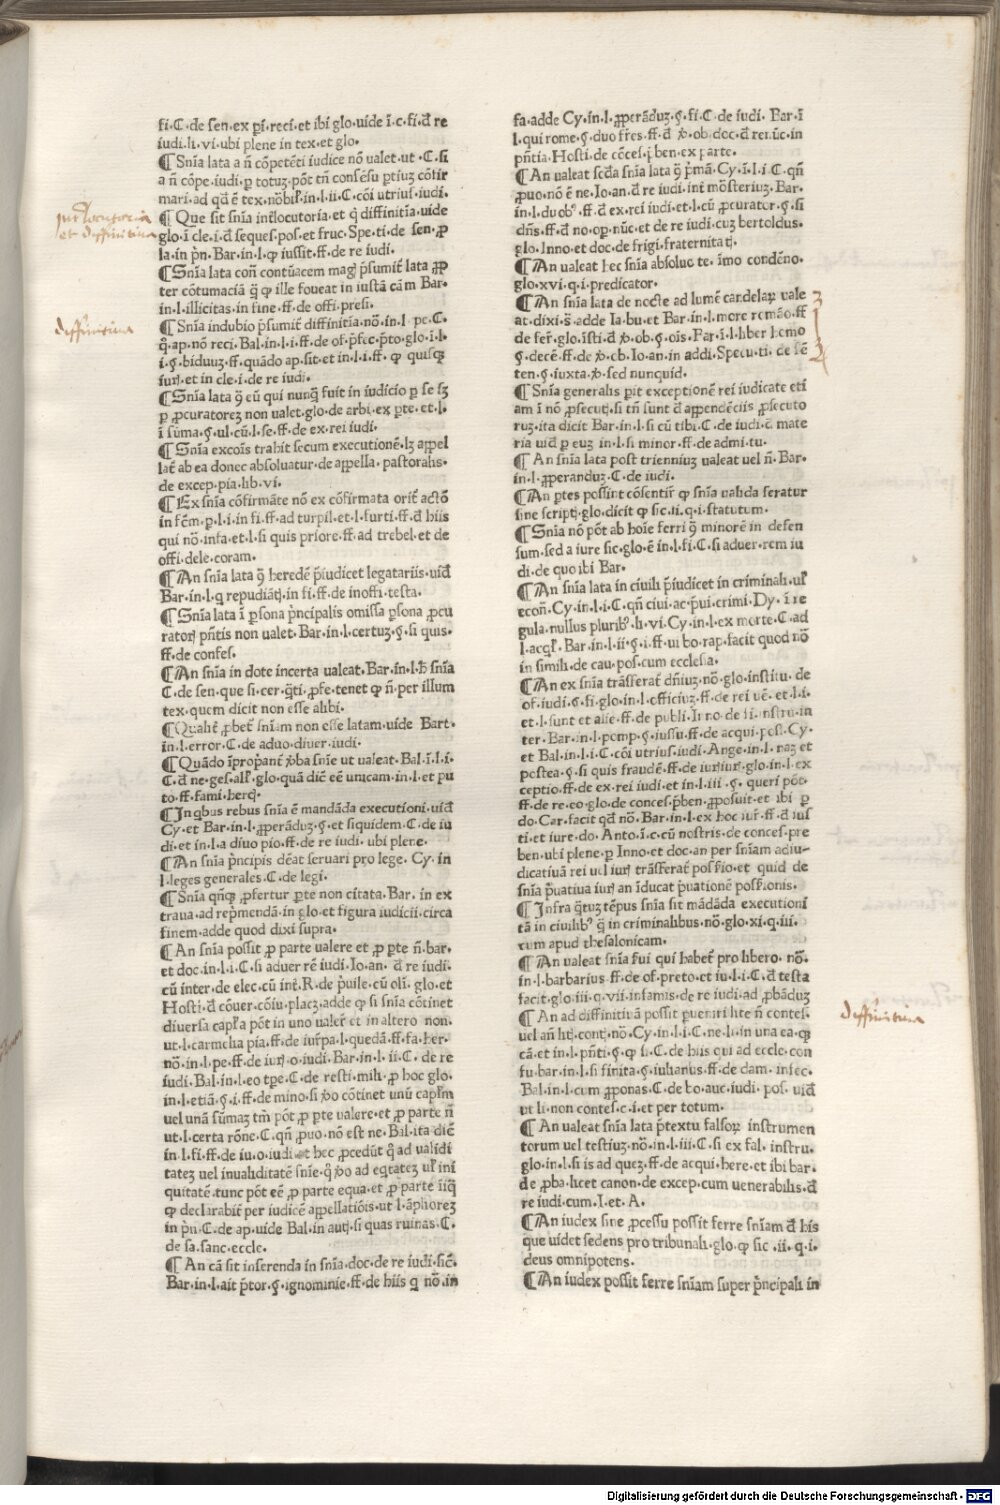 fi·C·de sen·ex p̄i·reci·et ibi glo·uide ī·c·fi·đ re
iudi·li·vi·ubi plene in tex·et glo·
¶Snīa lata a ñ cōpetēti iudice nō ualet·ut·C·si
a ñ cōpe·iudi·ꝑ totuꝫ·pōt tñ consēsu ꝑtiuꝫ cōfir
mari·ad qđ ē tex·nōbiľ·in·l·ii·C·cōi utriusꝰ·iudi·
¶Que sit snīa intlocutoria et q̄ diffinitīa·uide
glo·ī cle·i·đ seques·pos·et fruc·Spe·ti·de sen·ꝓ
la·in p̄n·Bar·in·l·ꝙ iussit·ff·de re iudi·
¶Snīa lata coñ contūacem magꝭ p̄sumit̄ lata ꝓp
ter cōtumaciā q̄ ꝙ ille foueat in iustā cām Bar·
in·l·illicitas·in fine·ff·de offi·presi·
¶Snīa indubio p̄sumit̄ diffinitīa·nō·in·l·pe·C·
q̄·ap·nō reci·Bal·in·l·i·ff·de of·p̄fec·p̄to·glo·ī·l·
i·§·biduuꝫ·ff·quādo ap·sit·et in·l·i·ff· ꝙ quisqꝫ
iurꝭ·et in cle·i·de re iudi·
¶Snīa lata ꝯ̄ eū qui nunq̄ fuit in iudicio ꝑ se sꝫ
ꝑ ꝓcuratoreꝫ non ualet·glo·de arbi·ex ꝑte·et·l·
i sūma·§·ul·cū·l·se·ff·de ex·rei iudi·
¶Snīa excoīs trahit secum executionē·lꝫ appel
lat̄ ab ea donec absoluatur·de appella·pastoralis·
de excep·pia·lib·vi·
¶Ex snīa cōfirmāte nō ex cōfirmata orit̄ actō
in fēm·ꝑ·l·i·in fi·ff·ad turpil·et·l·furti·ff·đ hiis
qui nō·infa·et·l·si quis priore·ff·ad trebel·et de
offi·dele·coram·
¶An snīa lata ꝯ̄ heredē p̄iudicet legatariis·uiđ
Bar·in·l·q repudiātꝭ·in fi·ff·de inoffi·testa·
¶Snīa lata ī ꝑsona p̄ncipalis omissa ꝑsona ꝓcu
ratorꝭ p̄ntis non ualet·Bar·in·l·certuꝫ·§·si quis·
ff·de confes·
¶An snīa in dote incerta ualeat·Bar·in·l·ħ snīa
C·de sen·que si·cer·q̄ti·ꝓfe·tenet ꝙ ñ·per illum
tex·quem dicit non esse alibi·
¶Qualit̄ ꝓbet̄ snīam non esse latam·uide Bart·
in·l·error·C·de aduo·diuer·iudi·
¶Quādo īprop̄ant̄ ꝟba snīe ut ualeat·Bal·ī·l·i·
C·đ ne·ges·alľ·glo·quā diē eē unicam·in·l·et pu
to·ff·fami·herꝗ·
¶In qbus rebus snīa ē mandāda executioni·uiđ
Cy·et Bar·in·l·ꝓperāduꝫ·§·et siquidem·C·de iu
di·et in·l·a diuo pio·ff·de re iudi·ubi plene·
¶An snīa p̄ncipis dēat seruari pro lege· Cy·in
l·leges generales·C·de legi·
¶Snīa qñqꝫ ꝓfertur ꝑte non citata·Bar·in ex
traua·ad rep̄mendā·in glo·et figura iudicii·circa
finem·adde quod dixi supra·
¶An snīa possit ꝓ parte ualere et ꝓ ꝑte ñ·bar·
et doc·in·l·i·C·si aduer rē iudi·Io·an· đ re iudi·
cū inter·de elec·cū int̄·R·de p̄uile·cū oli·glo·et
Hosti·đ cōuer·cōiu·placꝫ·adde ꝙ si snīa cōtinet
diuersa capľa pōt in uno ualer̄ et in altero non·
ut·l·carmelia pia·ff·de iur̄pa·l·quedā·ff·fa·her·
nō·in·l·pe·ff·de iurꝭ·o·iudi·Bar·in·l·ii·C·de re
iudi·Bal·in·l·eo tꝑe·C·de resti·mili·ꝓ hoc glo·
in·l·etiā·§·i·ff·de mino·si ꝟo cōtinet unū capľm
uel unā sūmaꝫ tm̄ pōt ꝓ ꝑte ualere·et ꝓ parte ñ
ut·l·certa rōne·C·qñ ꝓuo·nō est ne·Bal·ita dic̄
in·l·fi·ff·de iu·o·iudi·et hec ꝓcedūt q̄ ad ualidi
tateꝫ uel inualiditatē snīe·q̄ ꝟo ad eqtateꝫ uľ ini
quitatē·tunc pōt eē ꝓ parte equa·et ꝓ parte iīq̄
ꝙ declarabit̄ per iudicē appellatiōis·ut·l·āphoreꝫ
in p̄n·C·de ap·uide Bal·in autꝭ·si quas ruinas·C·
de sa·sanc·eccle·
¶An cā sit inserenda in snīa·doc·de re iudi·sic̄·
Bar·in·l·ait p̄tor·§·ignominie·ff·de hiis q nō·in
fa·adde Cy·in·l·ꝓperāduꝫ·§·fi·C·de iudi·Bar·ī
l·qui rome·§·duo fr̄es·ff·đ ꝟ·ob·doc·đ rei·uē·in
p̄ntia·Hosti·de cōces·p̄ben·ex parte·
¶An ualeat scđa snīa lata ꝯ̄ p̄mā·Cy·ī·l·i·C·qñ
ꝓuo·nō ē ne·Io·an·đ re iudi·int̄ mōsteriuꝫ·Bar·
in·l·duobꝰ·ff·đ ex·rei iudi·et·l·cū ꝓcurator·§·si
dñs·ff·đ no·oꝑ·nūc·et de re iudi·cuꝫ bertoldus·
glo·Inno·et doc·de frigi·fraternitatꝭ·
¶An ualeat hec snīa absoluo te·īmo condēno·
glo·xvi·q·i·predicator·
¶An snīa lata de nocte ad lumē candelaꝝ uale
at·dixi·s̄·adde Ia·bu·et Bar·in·l·more romāo·ff
de fer̄·glo·īsti·đ ꝟ·ob·§·oīs·Par·ī·l·liber homo
§·decē·ff·de ꝟ·ob·Io·an·in addi·Specu·ti·de sē
ten·§·iuxta·ꝟ·sed nunquid·
¶Snīa generalis ꝑit exceptionē rei iudicate etī
am ī nō ꝓsecutꝭ·si tñ sunt đ appendēciis ꝓsecuto
ruꝫ·ita dicit Bar·in·l·si cū tibi·C·de iudi·đ mate
ria uiđ ꝑ euꝫ in·l·si minor·ff·de admi·tu·
¶An snīa lata post trienniuꝫ ualeat uel ñ·Bar·
in·l·ꝓperanduꝫ·C·de iudi·
¶An ꝑtes possint cōsentir̄ ꝙ snīa ualida feratur
sine scriptꝭ·glo·dicit ꝙ sic·ii·q·i·statutum·
¶Snīa nō pōt ab hoīe ferri ꝯ̄ minorē in defen
sum·sed a iure sic·glo·ē in·l·fi·C·si aduer·rem iu
di·de quo ibi Bar·
¶An snīa lata in ciuili p̄iudicet in criminali·uľ
econ̄·Cy·in·l·i·C·qñ ciui·ac·p̄ui·crimi·Dy·ī re
gula·nullus pluribꝰ·li·vi·Cy·in·l·ex morte·C·ad
l·acqľ·Bar·in·l·ii·§·i·ff·ui bo·rap·facit quod nō
in simili·de cau·pos·cum ecclesia·
¶An ex snīa trāsferat̄ dñiuꝫ·nō·glo·institu·de
of·iudi·§·fi·glo·in·l·officiuꝫ·ff·de rei uē·et·l·i·
et·l·sunt et alie·ff·de publi·Inno·de fi·instru·in
ter·Bar·in·l·pomp·§·iussu·ff·de acqui·pos·Cy·
et Bal·in·l·i·C·cōi utrius·iudi·Ange·in·l·naꝫ et
postea·§·si quis fraudē·ff·de iurꝭiurꝭ·glo·in·l·ex
ceptio·ff·de ex·rei iudi·et in·l·iii·§·queri pōt·
ff·de re·eo·glo·de conces·p̄ben·ꝓposuit·et ibi ꝑ
do·Car·facit qđ nō·Bar·in·l·ex hoc iur̄·ff·đ ius
ti·et iure·do·Anto·ī·c·cū nostris·de conces·pre
ben·ubi plene·ꝑ Inno·et doc·an per snīam adiu-
dicatiuā rei uel iurꝭ trāsferat̄ posſio·et quid de
snīa p̄uatiua iurꝭ an īducat p̄uationē posſionis·
¶Infra q̄tuꝫ tēpus snīa sit mādāda executioni
tā in ciuilibꝰ q̄ in criminalibus·nō·glo·xi·q·iii·
cum apud thesalonicam·
¶An ualeat snīa ſ̄ui qui habet̄ pro libero·nō·
in·l·barbarius·ff·de of·preto·et iu·l·i·C·đ testa
facit·glo·iii·q·vii·infamis·de re iudi·ad ꝓbāduꝫ
¶An ad diffinitiuā possit pueniri lite ñ contes·
uel añ litꝭ·contꝭ·nō·Cy·in·l·i·C·ne·li·in una ea·qꝫ
cā·et in·l·p̄nti·§·ꝙ si·C·de hiis qui ad eccle·con
fu·bar·in·l·si finita·§·iulianus·ff·de dam·infec·
Bal·in·l·cum ꝓponas·C·de bo·auc·iudi·pos·uiđ
ut li·non contes·c·i·et per totum·
¶An ualeat snīa lata p̄textu falsoꝝ instrumen
torum uel testiuꝫ·nō·in·l·iii·C·si ex fal·instru·
glo·in·l·si is ad queꝫ·ff·de acqui·here·et ibi bar·
de ꝓba·licet canon·de excep·cum uenerabilis·đ
re iudi·cum·I·et·A·
¶An iudex sine ꝓcessu possit ferre snīam đ his
que uidet sedens pro tribunali·glo·ꝙ sic·ii·q·i·
deus omnipotens·
¶An iudex possit ferre snīam super p̄ncipali in
int̄locutoria
et diffinitiua
diffinitiua
diffinitiua
Digitalisierung gefördert durch die Deutsche Forschungsgemeinschaft - DFG